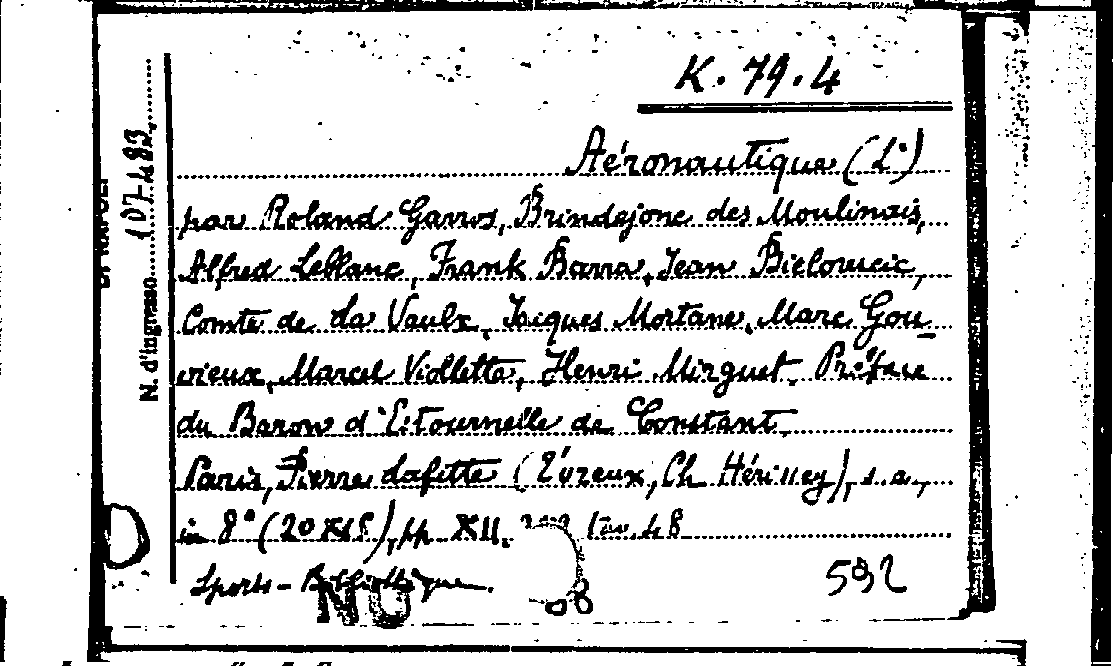 K. 79. 4
Aéronautique (L')
par Roland Garros, Brindejonc des Moulinais,
Alfred Leblanc, Frank Barra, Jean Bielovucic,
Comte de La Vaulx, Jacques Mortane, Marc Gou-
vieux, Marcel Viollette, Henri Mirguet. Préface
du Baron d'Estournelle de Constant.
Paris, Pierre Lafitte (Évreux, Ch Hérissey), s. a.,
in 8° (20x15), pp XII. tav. 48
Sports-Bibliothèque.
592
N. d'ingresso 107483
DI NAPOLI
NO